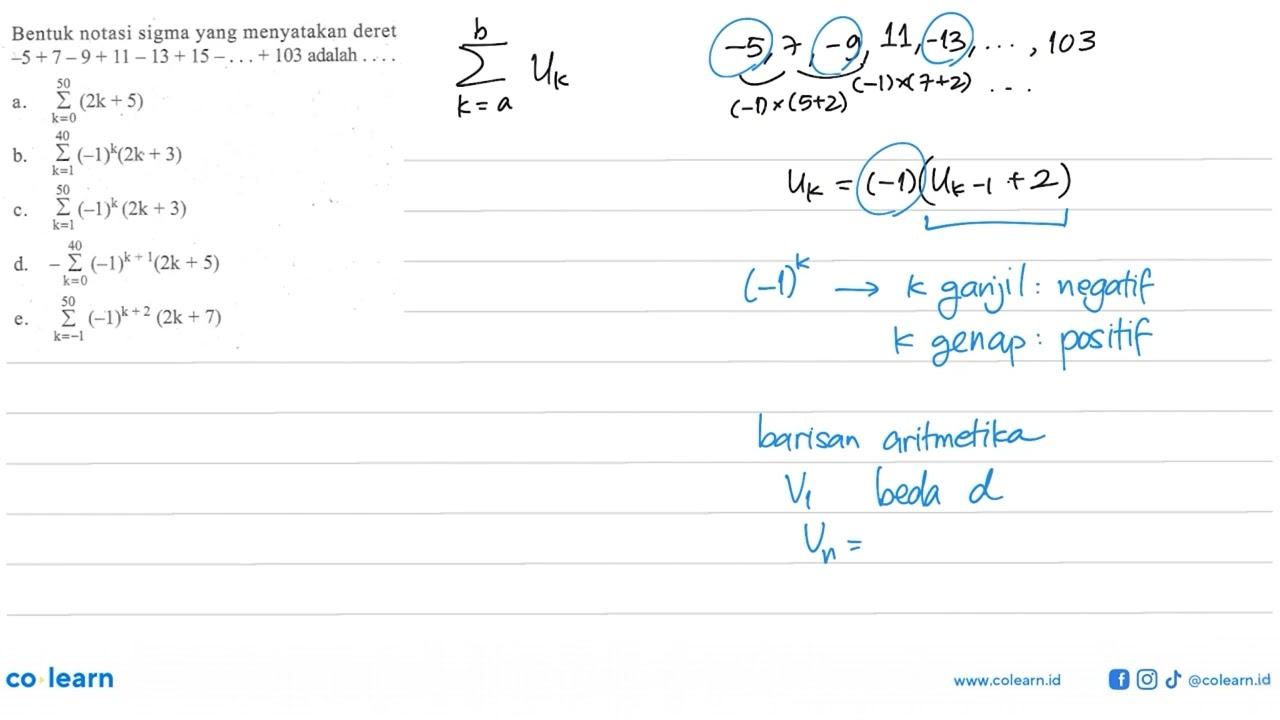 Bentuk notasi sigma yang menyatakan deret
–5 + 7 – 9 + 11 – 13 + 15 – . . . + 103 adalah . . . .
a. 50 Σ k=0 (2k + 5)
b. 40 Σ k=1 (–1)^k (2k + 3)
c. 50 Σ k=1 (–1)^k (2k + 3)
d. – 40 Σ k=0 (–1)^(k + 1) (2k + 5)
e. 50 Σ k=–1 (–1)^(k + 2) (2k + 7)
b Σ k=a U_k
-5, 7, -9, 11, -13, ..., 103
(-1)×(5+2) (-1)×(7+2) ...
U_k = (-1)(U_k-1 + 2)
(-1)^k → k ganjil: negatif
k genap: positif
barisan aritmetika
V_1 beda d
V_n =
co learn
www.colearn.id @colearn.id